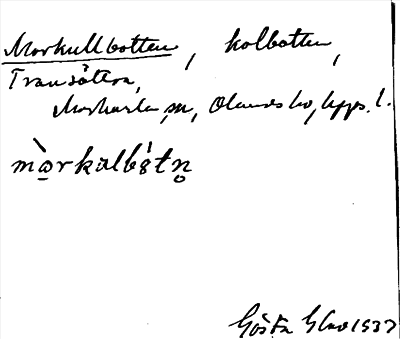 Morkullbotten, kolbotten,
Transättra,
Markarla sn, Olands hd, Upps. l.
mòrkalbótn̥
Gösta 1937